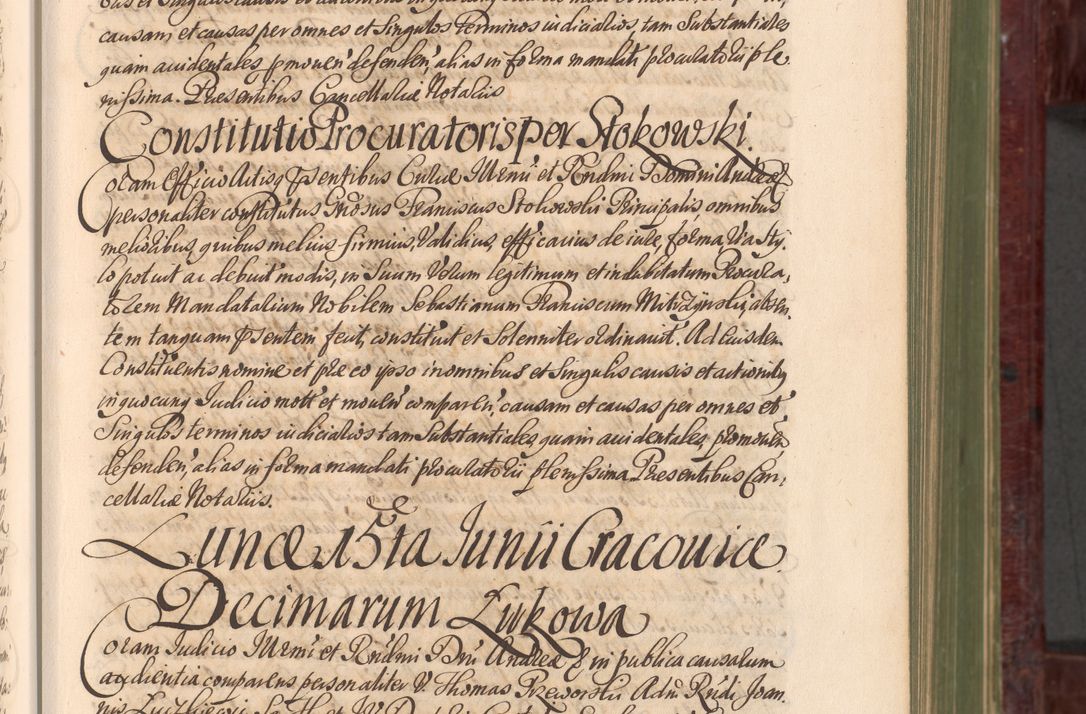 causam et causas per omnes et Singulos terminos iudicialios, tam Substantiales
quam accidentales, pmouen' defenden', alias in forma mandati procuratorij ple
nissima. Presentibus Cancellariæ Notariis
Constitutio Procuratoris per Stokowski.
Coram Officio Actisq Psentibus Curiæ Illrmi et Rndmi Domini Andreæ &
personaliter constitutus Grosus Franciscus Stokowski Principalis, omnibus
melioribus, quibus melius, firmius, Validius, efficacius de iure, forma Via Sty,
lo potuit ac debuit modis, in Suum Verum legitimum et indubitatum Procura,
torem Mandatarium Nobilem Sebastianum Franciscum Mitrzynski, absen,
tem tanquam Psentem fecit, constituit et Solenniter ordinauit. Ad euisdem
Constituentis nomine et pre eo ipso in omnibus et Singulis causis et actionibq
in quocunq Iudicio mott' et mouen' comparen', causam et causas per omnes et
Singulos terminos iudicialios tam Substantiales, quam accidentales, promouen
defenden', alias in forma mandati procuratorij plenissima. Presentibus Can,
cellariæ Notariis.
Lunæ 15ta Iunii Cracoviæ
Decimarum Łukowa
Coram Iudicio Illrmi et Rndmi Dni Andreæ & in publica causarum
audientia comparens personaliter V. Thomas Przeworski Adm Rndi Joan